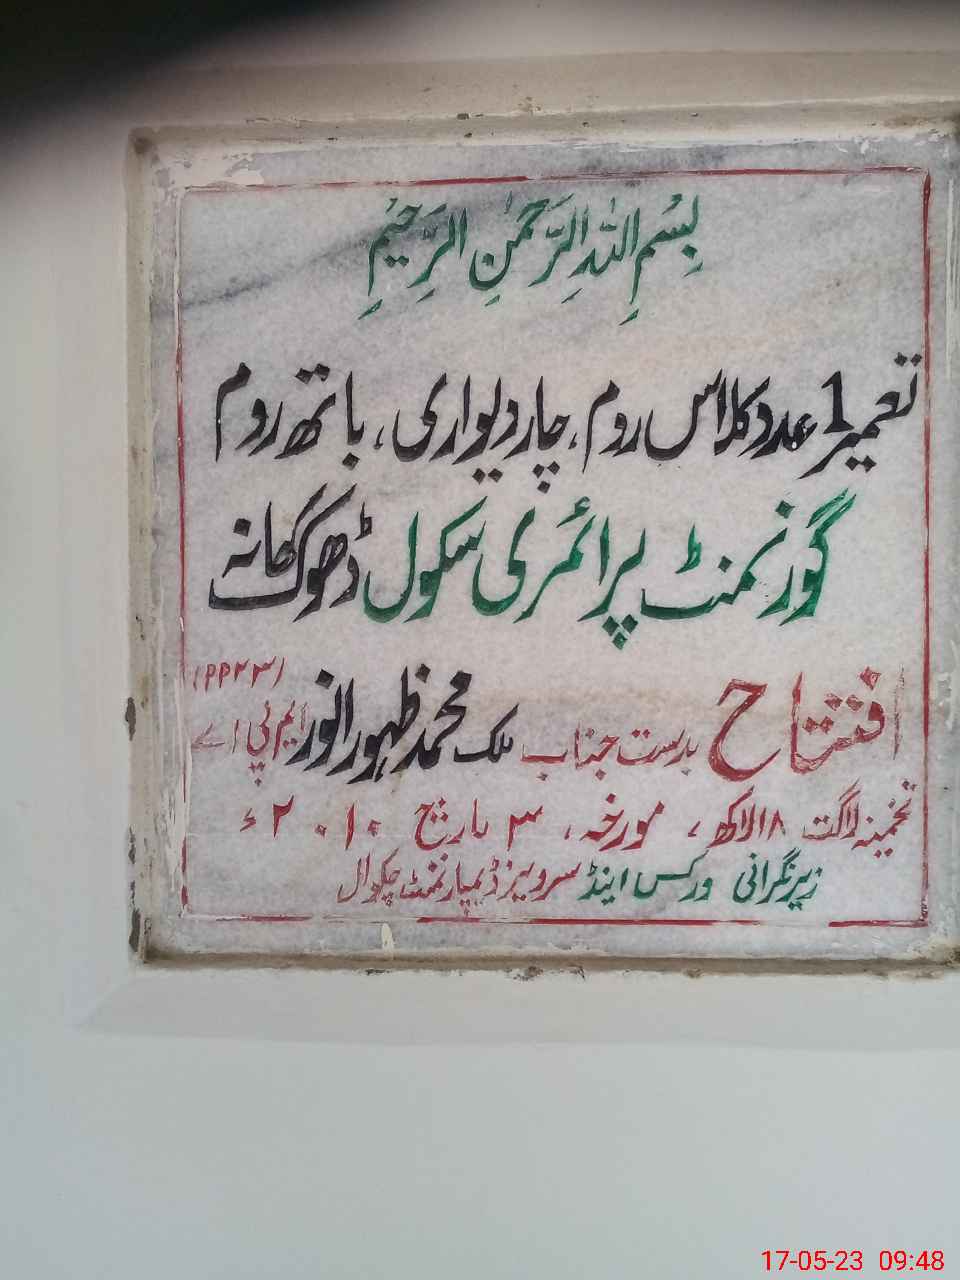 بِسْمِ اللّٰہِ الرَّحْمٰنِ الرَّحِیْمِ
تعمیر 1 عدد کلاس روم، چار دیواری، باتھ روم
گورنمنٹ پرائمری سکول ڈھوک گھانہ
افتتاح بدست جناب ملک محمد ظہور انور ایم پی اے (PP23)
تخمینہ لاگت ۸ لاکھ، مورخہ، ۳ مارچ ۲۰۱۰ء
زیر نگرانی ورکس اینڈ سروسیز ڈیپارنمنٹ چکوال
17-05-23 09:48